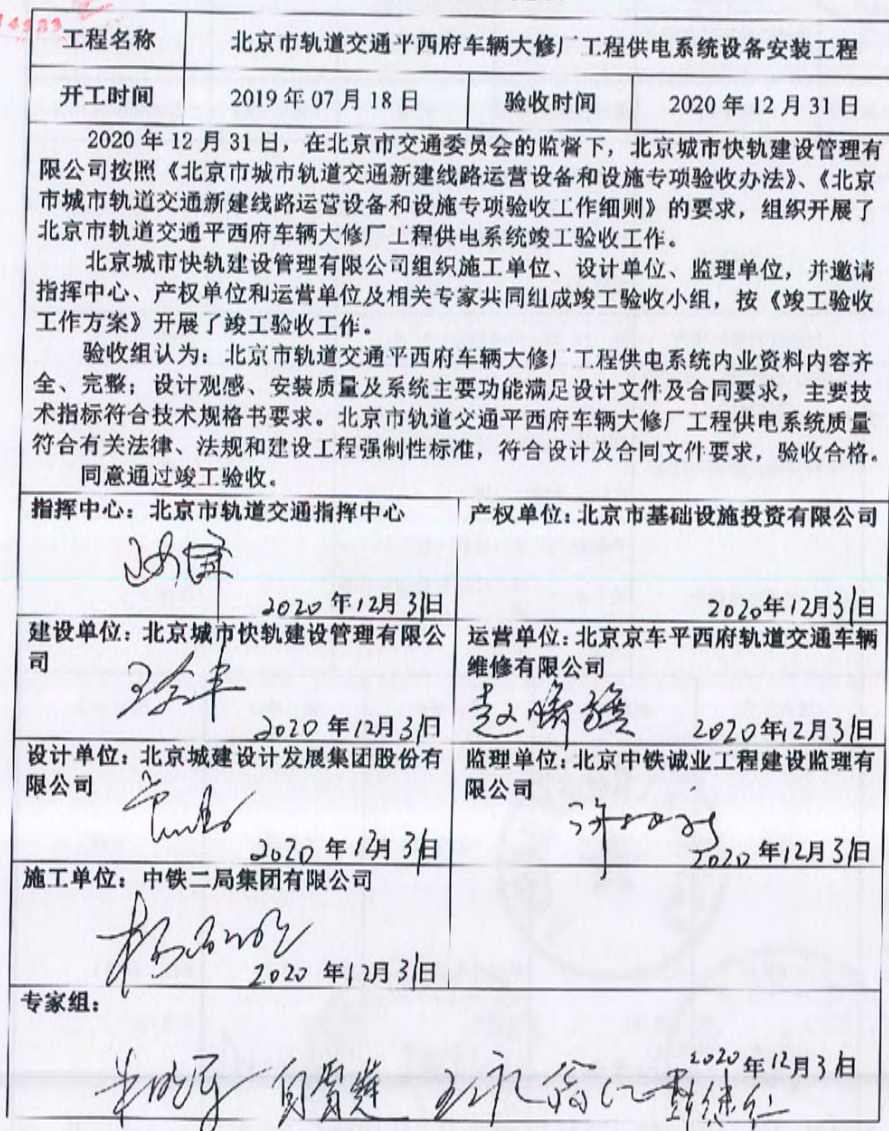 工程名称 北京市轨道交通平西府车辆大修厂工程供电系统设备安装工程
开工时间 2019年07月18日 验收时间 2020年12月31日
2020年12月31日，在北京市交通委员会的监督下，北京城市快轨建设管理有
限公司按照《北京市城市轨道交通新建线路运营设备和设施专项验收办法》、《北京
市城市轨道交通新建线路运营设备和设施专项验收工作细则》的要求，组织开展了
北京市轨道交通平西府车辆大修厂工程供电系统竣工验收工作。
北京城市快轨建设管理有限公司组织施工单位、设计单位、监理单位，并邀请
指挥中心、产权单位和运营单位及相关专家共同组成竣工验收小组，按《竣工验收
工作方案》开展了竣工验收工作。
验收组认为：北京市轨道交通平西府车辆大修厂工程供电系统内业资料内容齐
全、完整；设计观感、安装质量及系统主要功能满足设计文件及合同要求，主要技
术指标符合技术规格书要求。北京市轨道交通平西府车辆大修厂工程供电系统质量
符合有关法律、法规和建设工程强制性标准，符合设计及合同文件要求，验收合格。
同意通过竣工验收。
指挥中心：北京市轨道交通指挥中心
2020年12月31日
产权单位：北京市基础设施投资有限公司
2020年12月31日
建设单位：北京城市快轨建设管理有限公
司
2020年12月31日
运营单位：北京京车平西府轨道交通车辆
维修有限公司
2020年12月31日
设计单位：北京城建设计发展集团股份有
限公司
2020年12月31日
监理单位：北京中铁诚业工程建设监理有
限公司
2020年12月31日
施工单位：中铁二局集团有限公司
2020年12月31日
专家组：
2020年12月31日